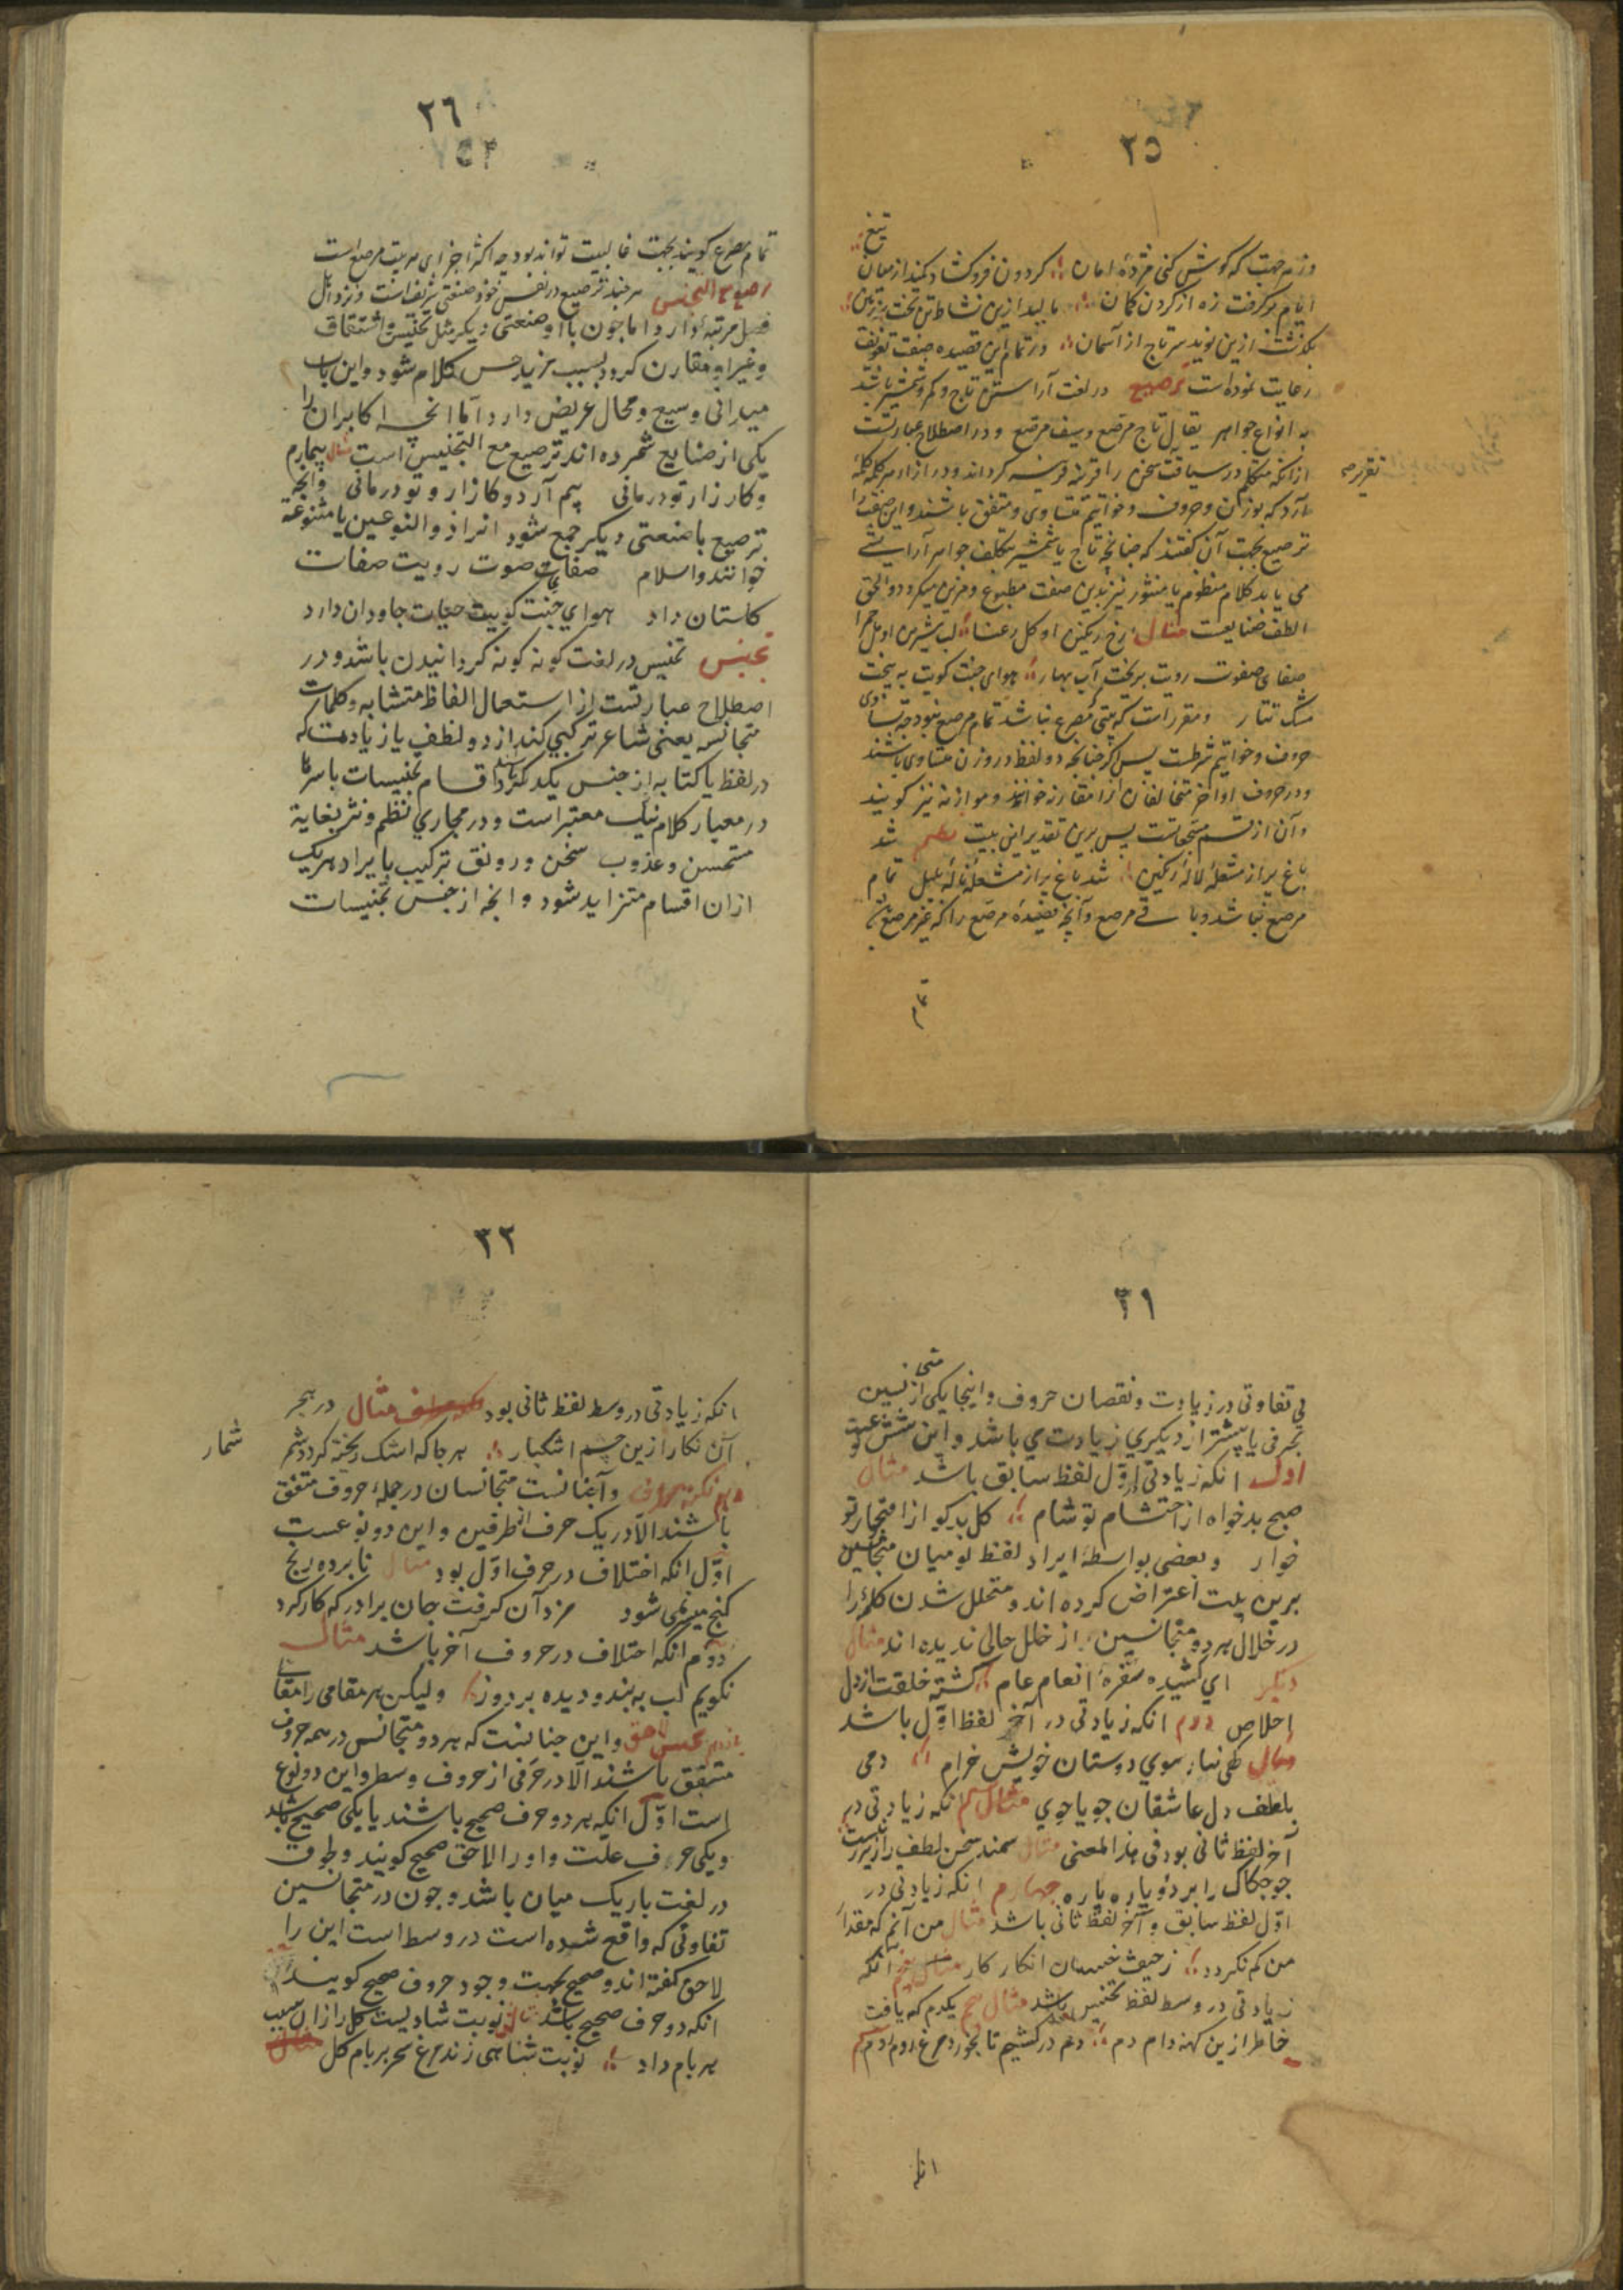 ٢٥
تیغ
وز به جهت که گوش کنی مژدهٔ امان ؛ گردون فروگشاد کمند از میان
ایام برگرفت زه از گردن کمان ؛ بالید ازین نشاط تن تخت بر زمین
بگذشت ازین نوید سر تاج از آسمان ؛ و در تمام این قصیده صنعت تفویف
رعایت نموده است ترصیع در لغت آراستن تاج و کمر و شمشیر باشد
به انواع جواهر یقال تاج مرصع و سیف مرصع و در اصطلاح عبارتست
از آنکه متکلم در سیاقت سخن را قرینه قرینه گرداند و در ازاء هر کلمه کلمهٔ
آرد که بوزن و حروف و خواتیم متساوی و متفق باشند و این صنعت را
ترصیع بجهت آن گفتند که چنانچه تاج یا شمشیر بتکلف جواهر آرایشی
می یابد کلام منظوم یا منثور نیز بدین صنعت مطبوع و مزین میگردد و الحق
الطف صنایعست مثال رخ رنگین او گل رعنا ؛ لب شیرین او مل حمرا
صفای صفوت رویت بریخت آب بهار ؛ هوای جنت کویت به بیخت
مشک تتار و مقرر است که بیتی مصرع نباشد تمام مرصع نبود چه تساوی
حروف و خواتیم شرطست پس اگر چنانچه دو لفظ در وزن متساوی باشند
و در حروف اواخر متخالفان آنرا مقارنه خوانند و موازنه نیز گویند
و آن از قسم مسجعاتست پس برین تقدیر این بیت نظم شد
باغ پر از مشعلهٔ لاله رنگین ؛ شد باغ پر از مشغلهٔ ناله بلبل تمام
مرصع نباشد و باقی مرصع و آنچه قصیدهٔ مرصع را که غیر مرصع
تمام
٢٦
تمام مصرع گویند بجهت غالبیت تواند بود چه اکثر اجزای هر بیت مرصع است
ترصیع مع التجنیس هر چند ترصیع در نفس خود صنعتی شریف است و نزد اهل
فضل مرتبهٔ دارد اما چون با او صنعتی دیگر مثل تجنیس و اشتقاق
و غیر ان مقارن گردد بسبب مزید حسن کلام شود و این باب
میدانی وسیع و مجال عریض دارد اما آنچه اکابر ان را
یکی از صنایع شمرده اند ترصیع مع التجنیس است مثال بیمارم
و کار زار تو درمانی بیم آرد و کارزار و تو درمانی و آنچه
ترصیع با صنعتی دیگر جمع شود آنرا ذو النوعین یا متنوعه
خوانند و اسلام صفای صوت رویت صفات
گلستان داد هوای جنت کویت حیات جاودان دارد
تجنیس تجنیس در لغت گونه گونه گردانیدن باشد و در
اصطلاح عبارتست از استعمال الفاظ متشابه و کلمات
متجانسه یعنی شاعر ترکیبی کند از دو لفظ یا زیادت که
در لفظ یا کتابه از جنس یکدگر باشند و اقسام تجنیسات باسرها
در معیار کلام نیک معتبر است و در مجاری نظم و نثر بغایة
مستحسن و عذوب سخن و رونق ترکیب بایراد هریک
از ان اقسام متزاید شود و انچه از جنس تجنیسات
٣١
فی تفاوتی در زیادت و نقصان حروف و اینجا یکی از متجانسین
بحرفی یا بیشتر از دیگری زیادت می باشد و این شش نوعست
اول انکه زیادتی در اول لفظ سابق باشد مثال
صبح بدخواه از احتشام تو شام ؛ گل بدگو از افتخار تو
خوار و بعضی بواسطهٔ ایراد لفظ تو میان متجانسین
برین بیت اعتراض کرده اند و متخلل شدن کلمهٔ را
در خلال هر دو متجانسین از خلل خالی ندیده اند مثال
دیگر ای کشیده سفرهٔ انعام عام ؛ گشته خلقت از دل
اخلاص دوم انکه زیادتی در آخر لفظ اول باشد
مثال بسوی دوستان خویش خرام ؛ دمی
بلطف دل عاشقان جویا جوی مثال سیم انکه زیادتی در
آخر لفظ ثانی بود فی هذا المعنی مثال سمند سخن لطف را زیر تست
چهارم انکه زیادتی در
اول لفظ سابق و آخر لفظ ثانی باشد مثال من آنم که مقدار
من کم نگردد ؛ ز حیف خسیسان انکار کار مثال پنجم آنکه
زیادتی در وسط لفظ تجنیس باشد مثال یکدم که یافت
خاطر ازین کهنه دام دم ؛ دم درکشیم تا نخورد مرغ
انکه
٣٢
انکه زیادتی در وسط لفظ ثانی بود مثال در هجر
آن نگار ازین چشم اشکبار ؛ هر جا که اشک ریخته گردد شمر
شمار
و آنچنانست متجانسان در جملهٔ حروف متفق
باشند الا در یک حرف از طرفین و این دو نوعست
اول انکه اختلاف در حرف اول بود مثال نابرده رنج
گنج میسر نمی شود مزد آن گرفت جان برادر که کار کرد
دوم انکه اختلاف در حروف آخر باشد مثال
نگویم لب به بند و دیده بردوز ؛ ولیکن هر مقامی را مقالی
تجنیس لاحق و این چنانست که هر دو متجانس در همه حروف
متفق باشند الا در حرفی از حروف وسط و این دو نوع
است اول انکه هر دو حرف صحیح باشند یا یکی صحیح باشد
و یکی حرف علت و او را لاحق صحیح گویند و طوق
در لغت باریک میان باشد و چون در متجانسین
تفاوتی که واقع شده است در وسط است این را
لاحق گفته اند و صحیح بجهت وجود حروف صحیح گویند
انکه دو حرف صحیح باشد مثال نوبت شادیست گل را زان سبب
بر بام داد ؛ نوبت شاهی زند مرغ سحر بر بام گل مثال